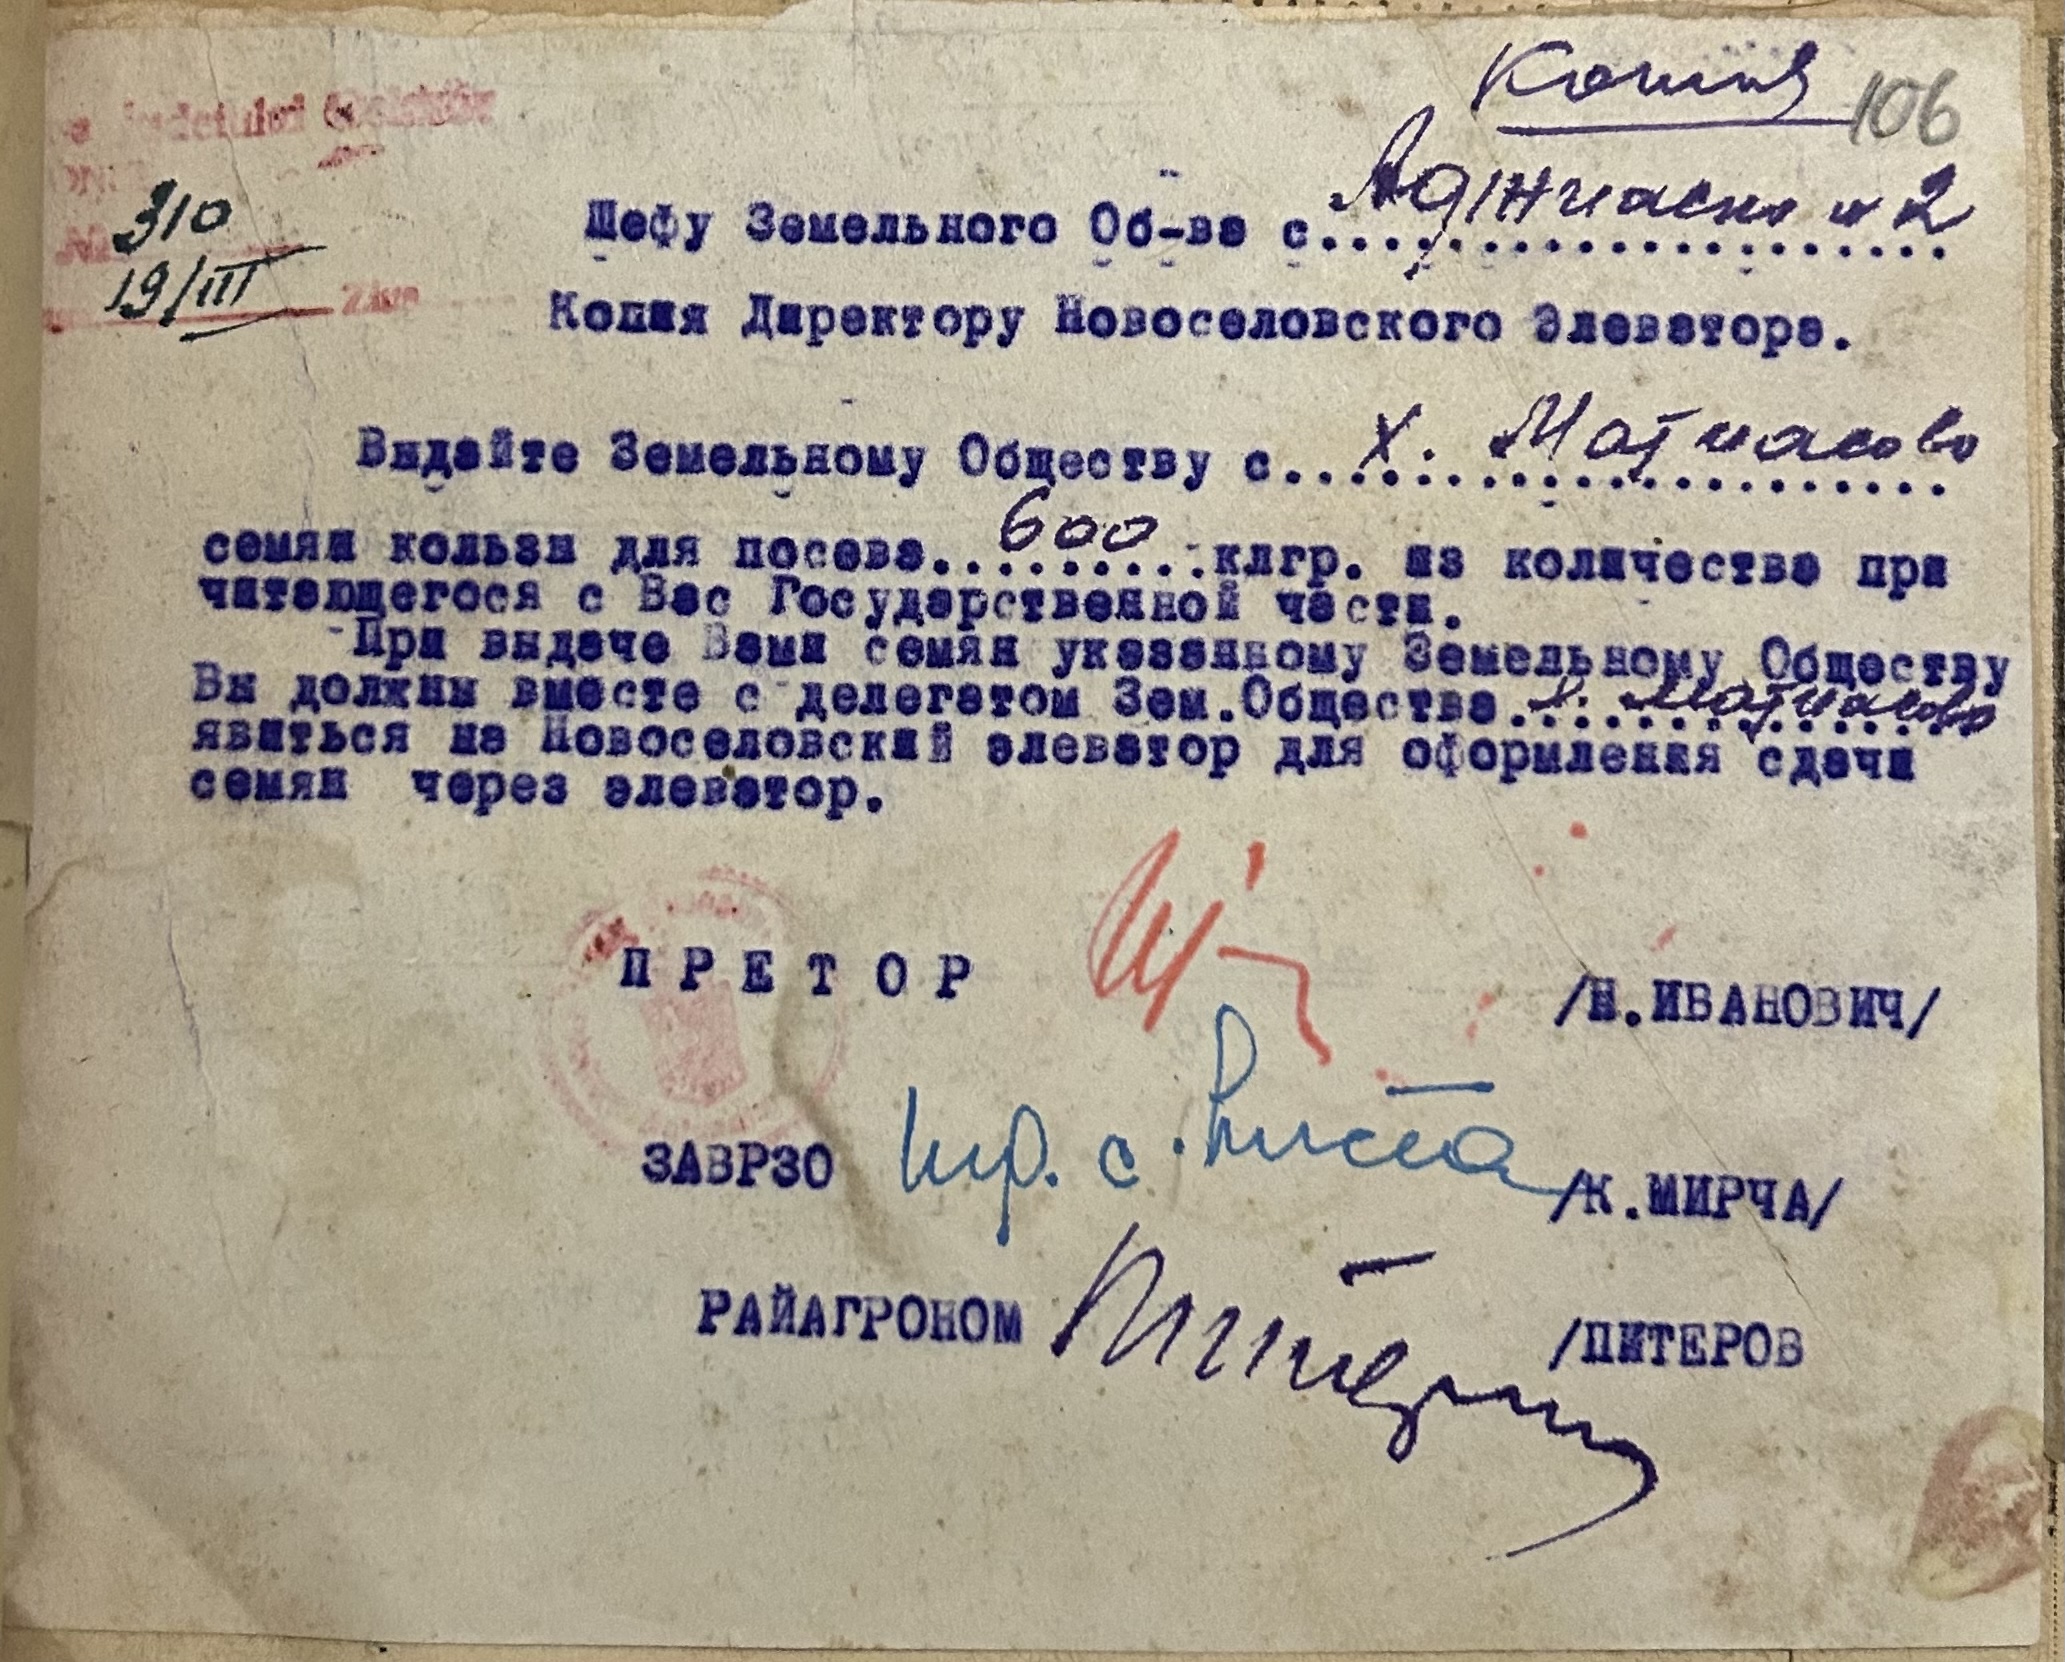 Копия
106
310
19/III
Ziua
Шефу Земельного Об-ва с. Аджиаски № 2
Копия Директору Новоселовского Элеватора.
Выдайте Земельному Обществу с. х. Матиясово
семян кользы для посева 600 клгр. из количества при
читающегося с Вас Государственной части.
При выдаче Вами семян указанному Земельному Обществу
Вы должны вместе с делегатом Зем.Общества х. Матиясово
явиться на Новоселовский элеватор для оформления сдачи
семян через элеватор.
ПРЕТОР /Н.ИВАНОВИЧ/
ЗАВРЗО /К.МИРЧА/
РАЙАГРОНОМ /ПИТЕРОВ